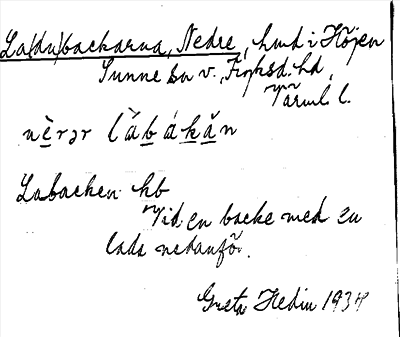 La(du)backarna, Nedre, hmd i Höjen
Sunne sn v., Fryksd. hd,
Värml l.
nèrər làbákăn
Labacken hb
Vid en backe med en
lada nedanför.
Greta Hedin 1934